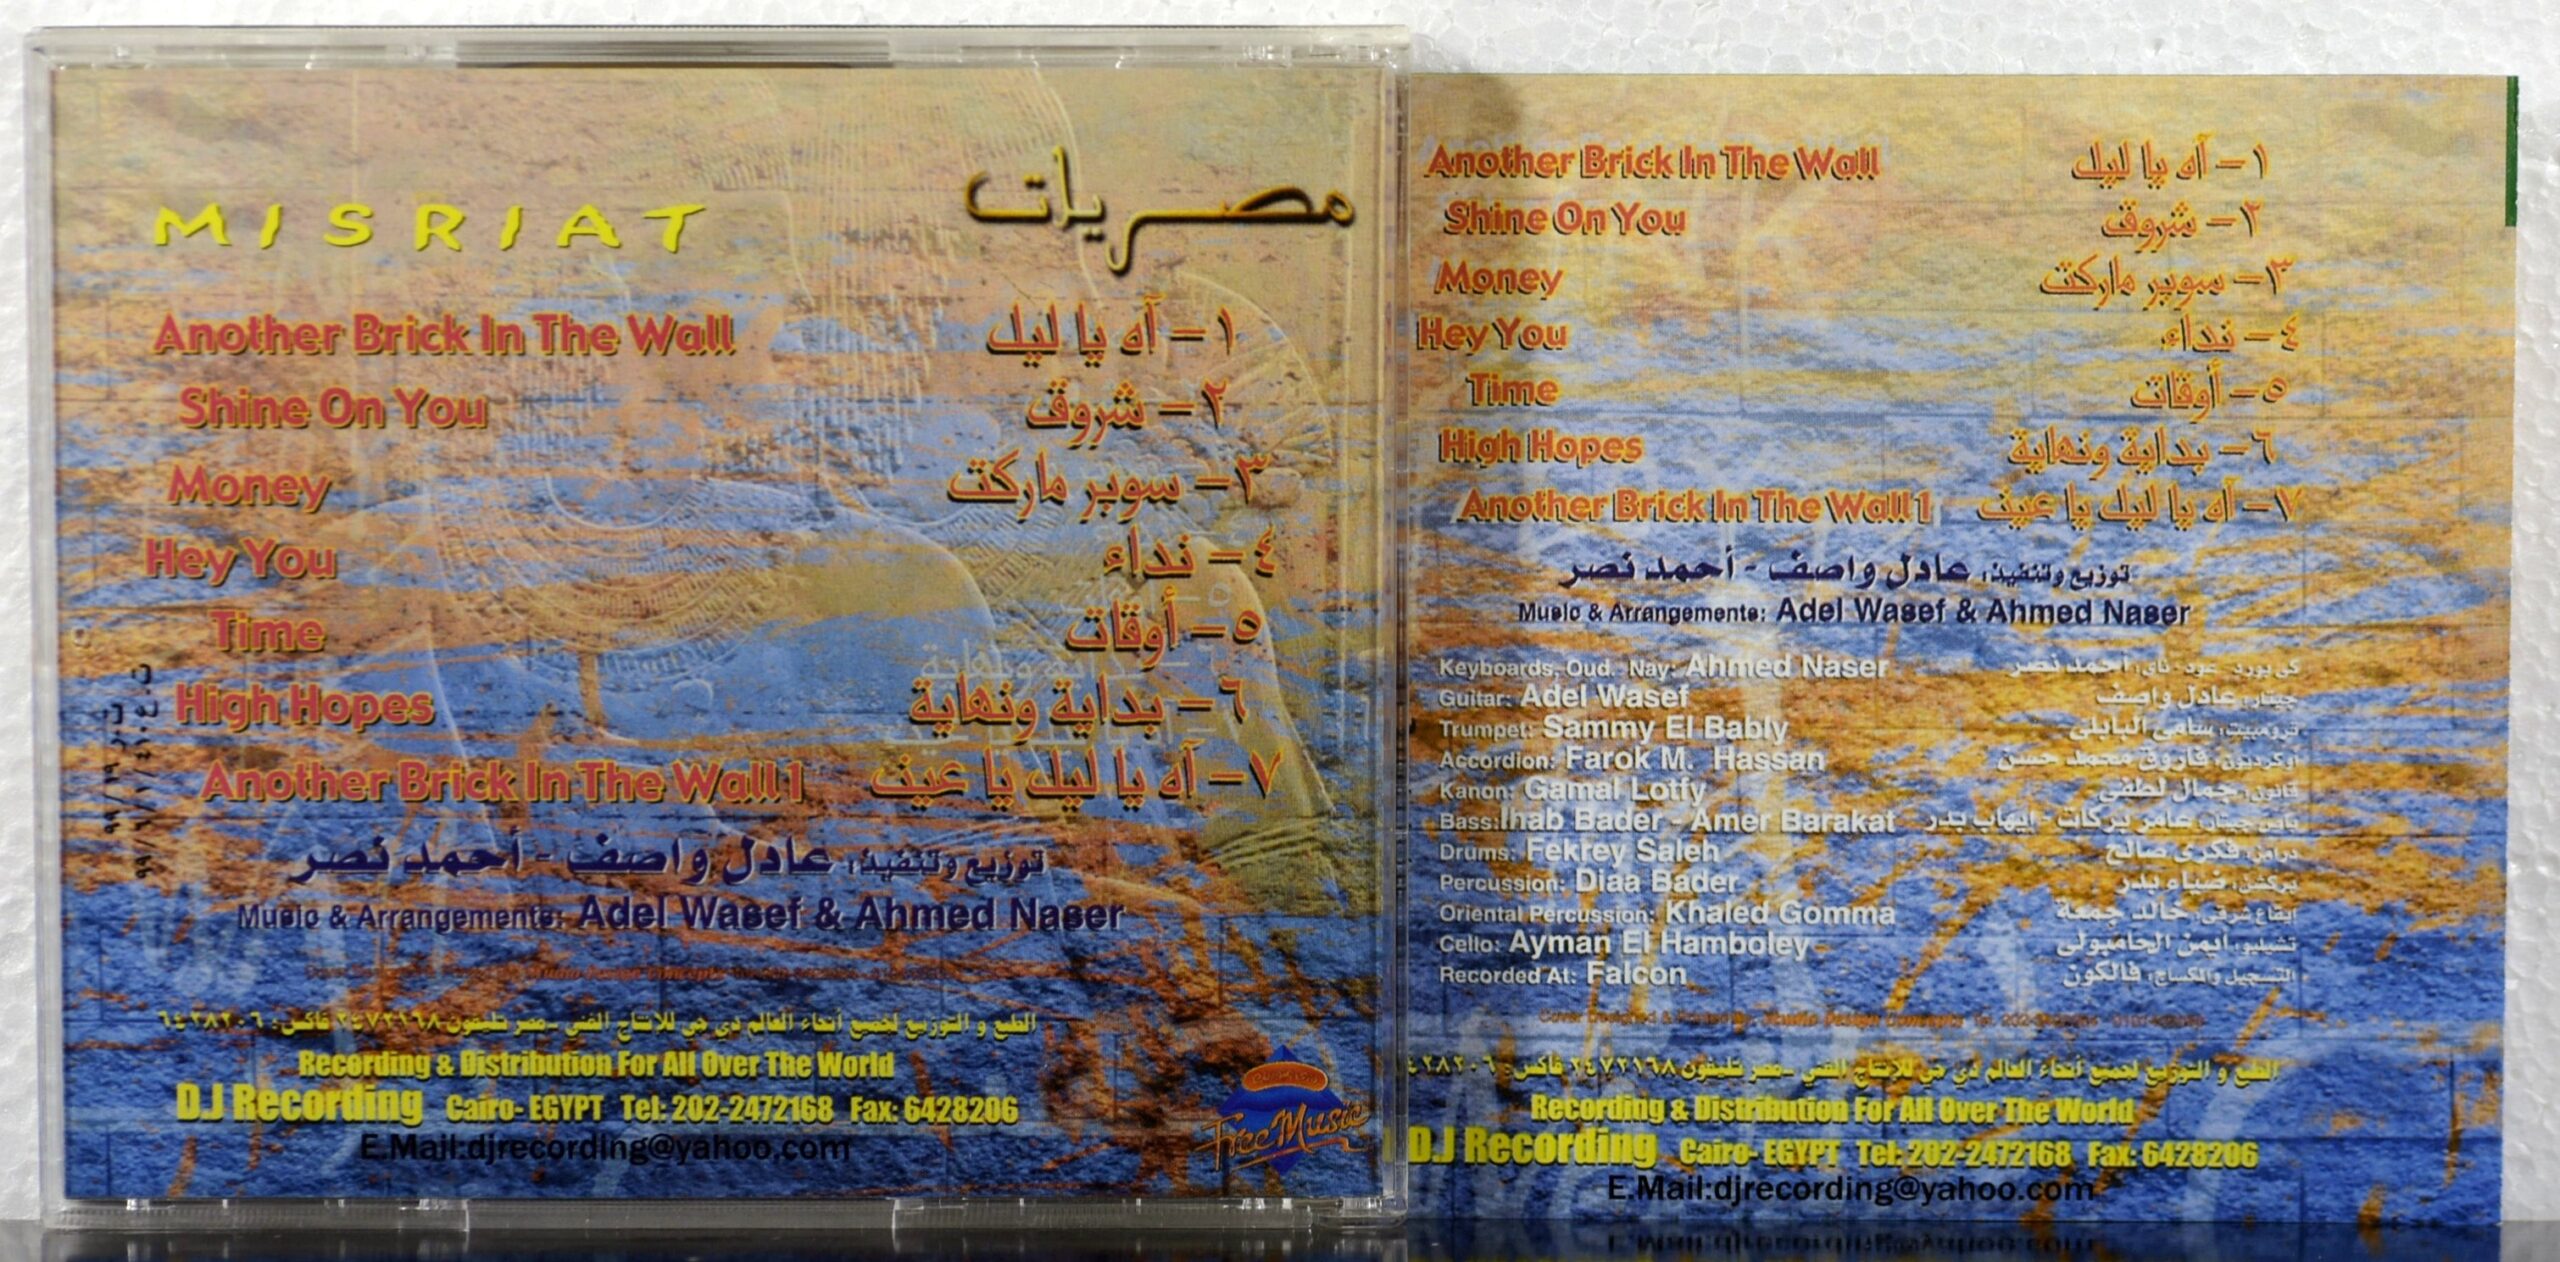 MISRIAT مصريات
Another Brick In The Wall ١- آه يا ليل
Shine On You ٢- شروق
Money ٣- سوبر ماركت
Hey You ٤- نداء
Time ٥- أوقات
High Hopes ٦- بداية ونهاية
Another Brick In The Wall 1 ٧- آه يا ليل يا عين
توزيع وتنفيذ: عادل واصف - أحمد نصر
Music & Arrangements: Adel Wasef & Ahmed Naser
Studio Design Concepts
الطبع و التوزيع لجميع أنحاء العالم دي جي للانتاج الفني -مصر تليفون ٢٤٧٢١٦٨ فاكس: ٦٤٢٨٢٠٦
Recording & Distribution For All Over The World
DJ Recording Cairo- EGYPT Tel: 202-2472168 Fax: 6428206
E.Mail:djrecording@yahoo.com
Free Music
Another Brick In The Wall ١- آه يا ليل
Shine On You ٢- شروق
Money ٣- سوبر ماركت
Hey You ٤- نداء
Time ٥- أوقات
High Hopes ٦- بداية ونهاية
Another Brick In The Wall 1 ٧- آه يا ليل يا عين
توزيع وتنفيذ: عادل واصف - أحمد نصر
Music & Arrangements: Adel Wasef & Ahmed Naser
Keyboards, Oud. Nay: Ahmed Naser كى بورد - عود - ناى: أحمد نصر
Guitar: Adel Wasef جيتار: عادل واصف
Trumpet: Sammy El Bably ترومبيت: سامى البابلى
Accordion: Farok M. Hassan أوكرديون: فاروق محمد حسن
Kanon: Gamal Lotfy قانون: جمال لطفى
Bass:Ihab Bader - Amer Barakat باص جيتار: عامر بركات - إيهاب بدر
Drums: Fekrey Saleh درامز: فكرى صالح
Percussion: Diaa Bader بيركشن: ضياء بدر
Oriental Percussion: Khaled Gomma إيقاع شرقى: خالد جمعة
Cello: Ayman El Hamboley تشيللو: أيمن الحامبولى
Recorded At: Falcon التسجيل والمكساج: فالكون
Cover Designed & Studio Design Concepts
الطبع و التوزيع لجميع أنحاء العالم دي جي للانتاج الفني -مصر تليفون ٢٤٧٢١٦٨ فاكس: ٦٤٢٨٢٠٦
Recording & Distribution For All Over The World
DJ Recording Cairo- EGYPT Tel: 202-2472168 Fax: 6428206
E.Mail:djrecording@yahoo.com